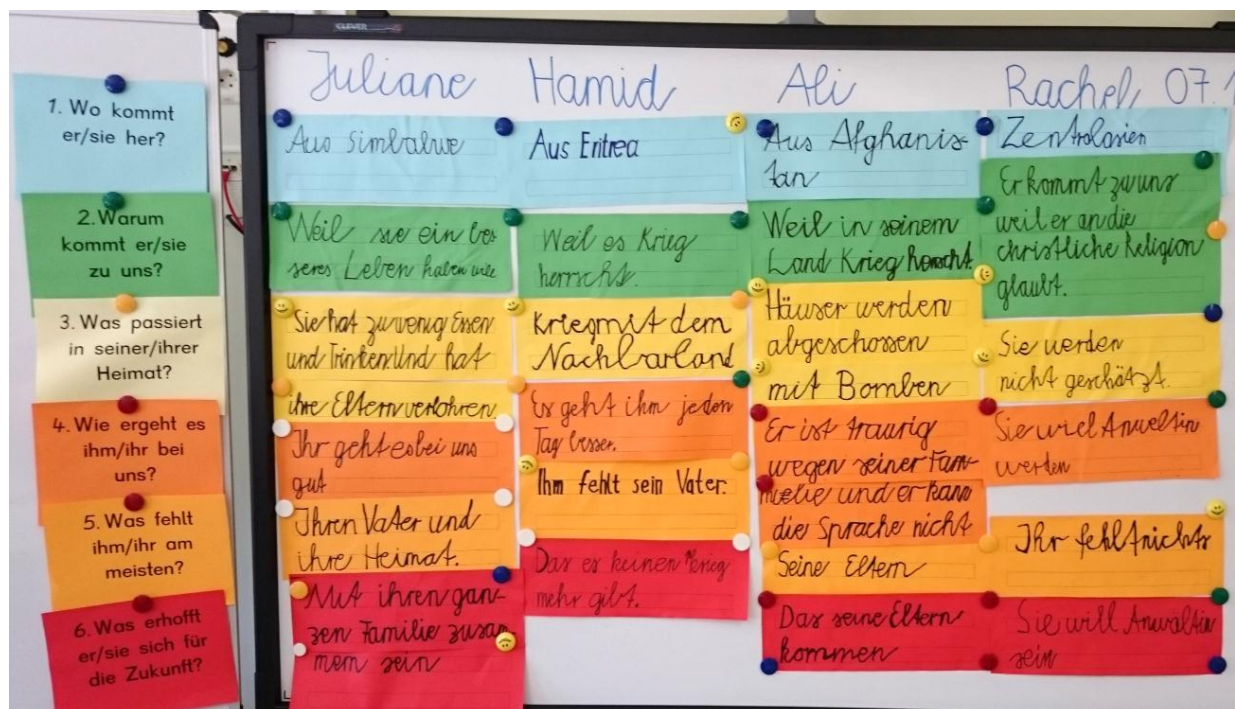 CLEVER
Juliane
Hamid
Ali
Rachel 07.1
1. Wo kommt
er/sie her?
2. Warum
kommt er/sie
zu uns?
3. Was passiert
in seiner/ihrer
Heimat?
4. Wie ergeht es
ihm/ihr bei
uns?
5. Was fehlt
ihm/ihr am
meisten?
6. Was erhofft
er/sie sich für
die Zukunft?
Aus Simbabwe
Weil sie ein bes
seres Leben haben will
Sie hat zu wenig Essen
und Trinken. Und hat
ihre Eltern verlohren.
Ihr geht es bei uns
gut
Ihren Vater und
ihre Heimat.
Mit ihren gan-
zen Familie zusam
mem sein
Aus Eritrea
Weil es Krieg
herrscht.
Krieg mit dem
Nachbarland
Es geht ihm jeden
Tag besser.
Ihm fehlt sein Vater.
Das es keinen Krieg
mehr gibt.
Aus Afghanis-
tan
Weil in seinem
Land Krieg herrscht
Häuser werden
abgeschossen
mit Bomben
Er ist traurig
wegen seiner Fam-
melie und er kann
die Sprache nicht
Seine Eltern
Das seine Eltern
kommen
Zentralasien
Er kommt zu uns
weil er an die
christliche Religion
glaubt.
Sie werden
nicht geschätzt.
Sie wiel Anweltin
werden
Ihr fehlt nichts
Sie will Anwältin
sein